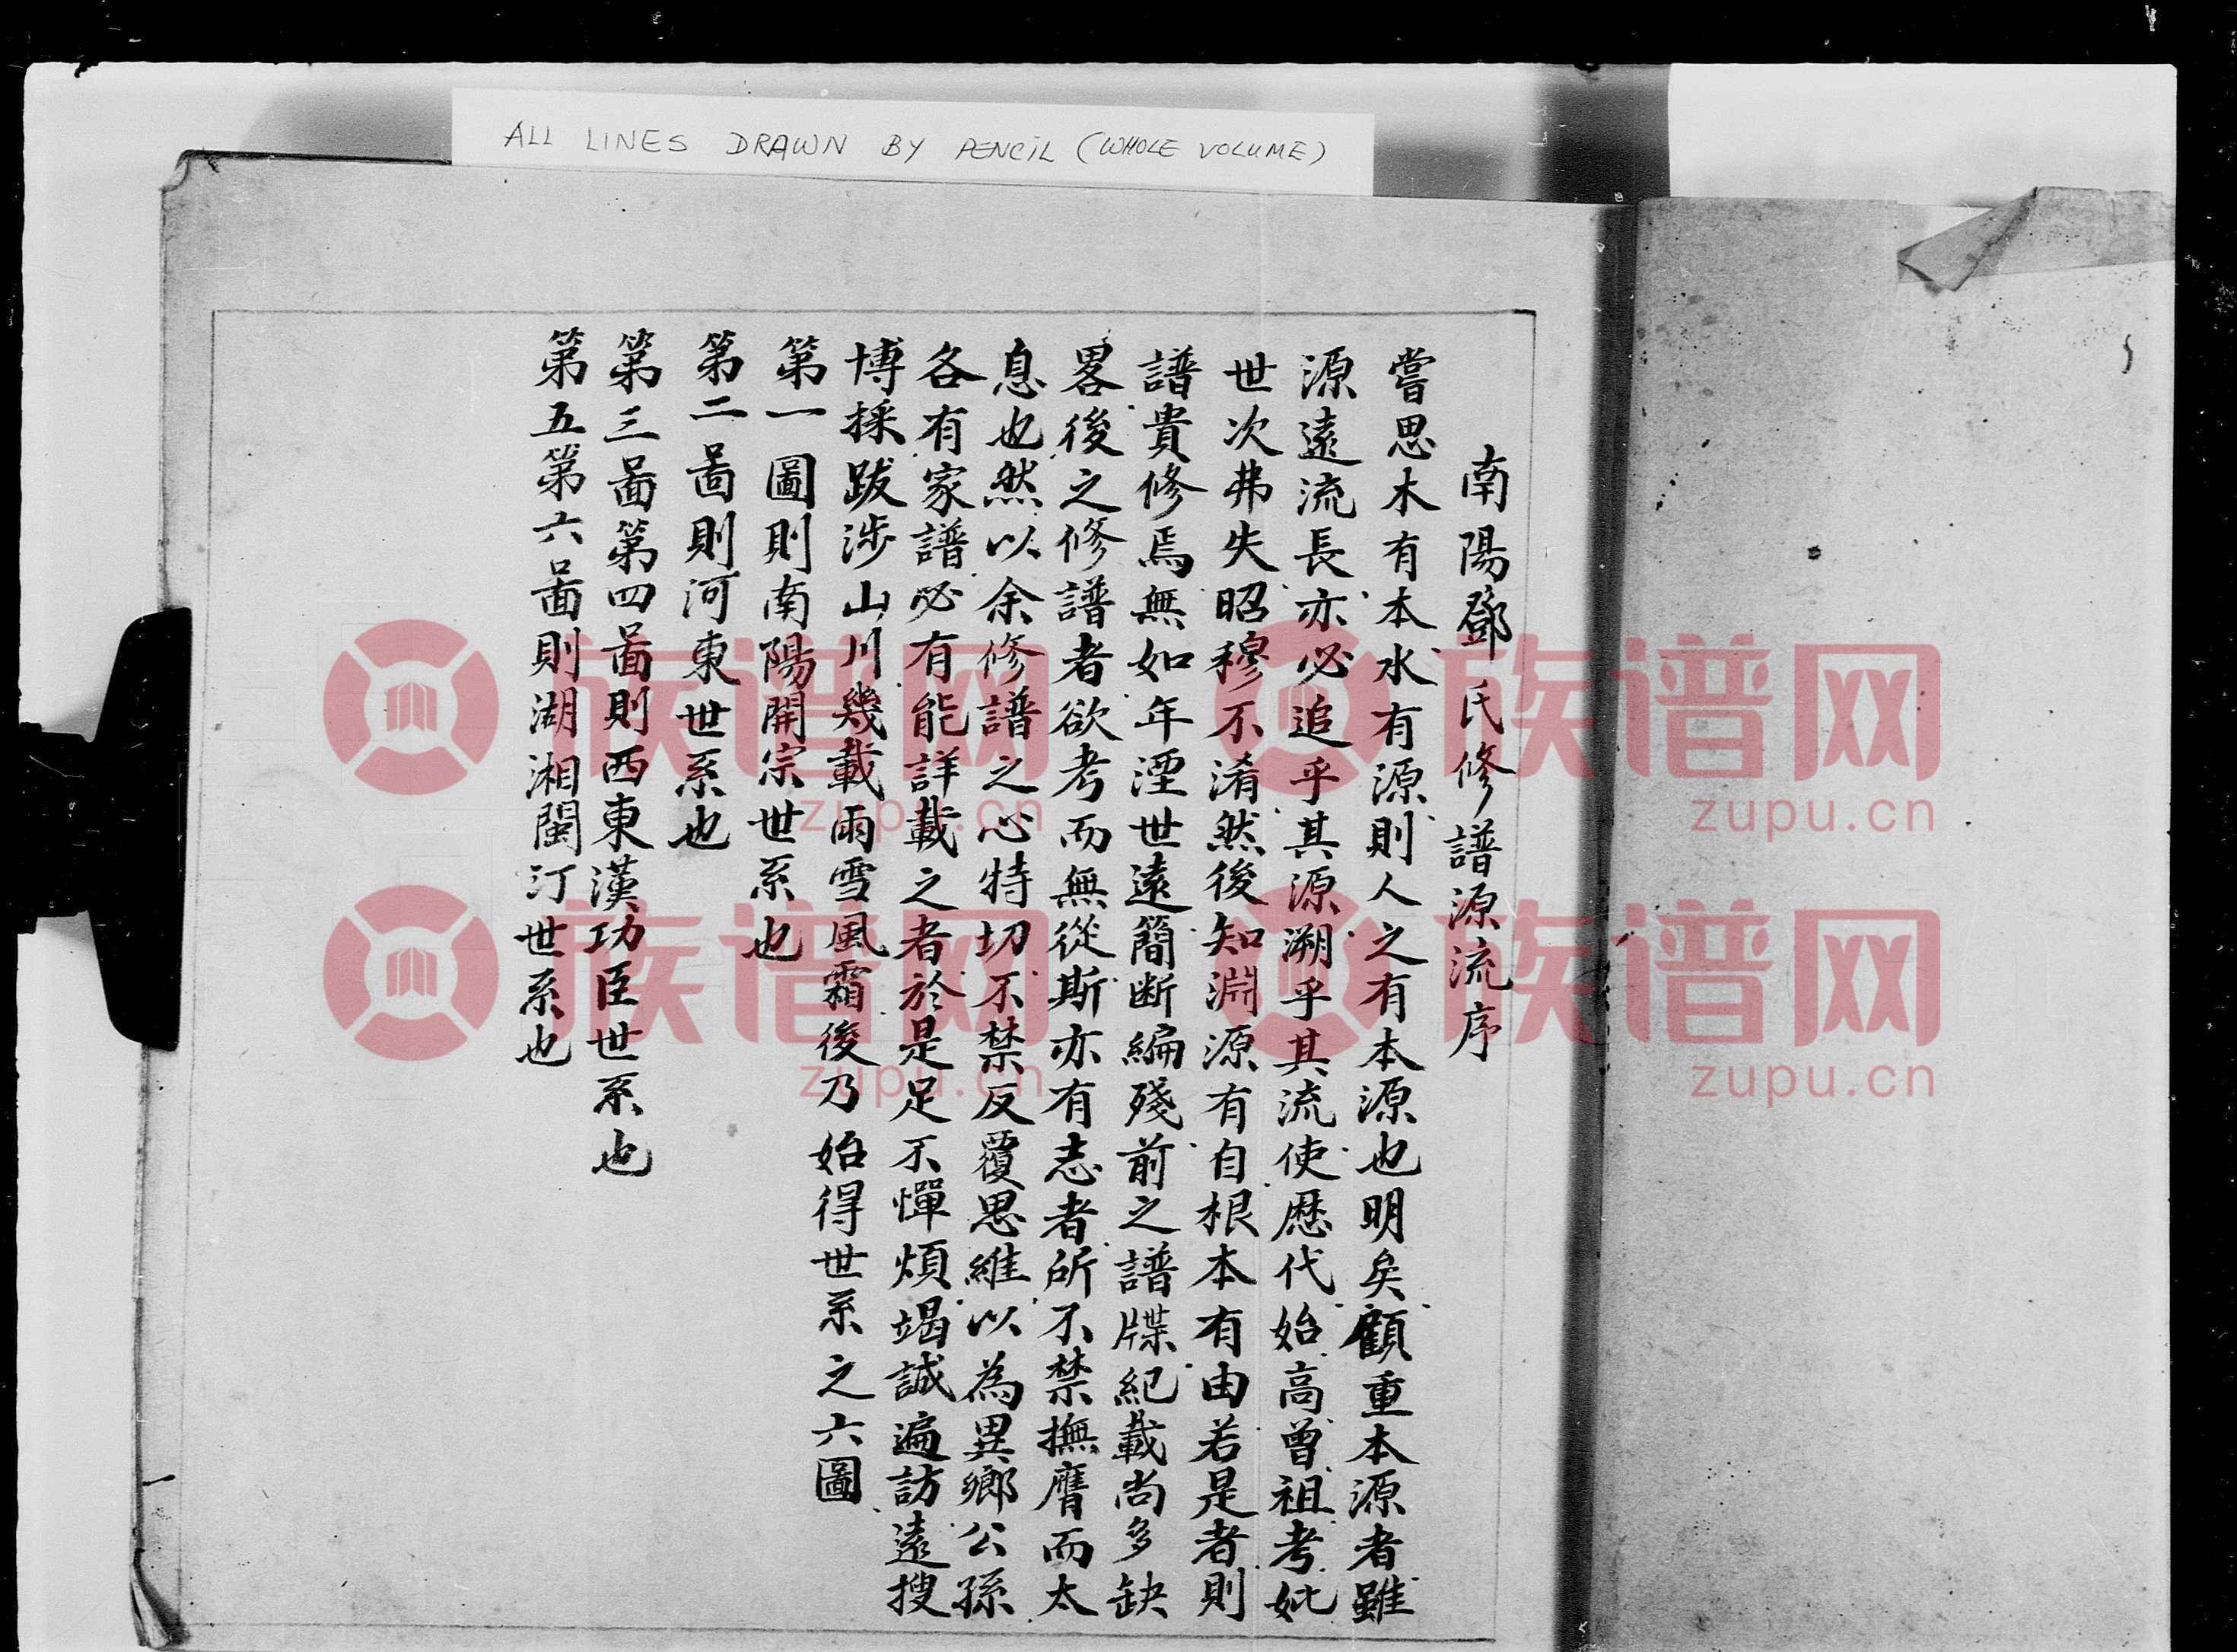 ALL LINES DRAWN BY PENCIL (WHOLE VOLUME)
南陽鄧氏修譜源流序
嘗思木有本水有源則人之有本源也明矣顧重本源者雖
源遠流長亦必追乎其源溯乎其流使歷代始高曾祖考妣
世次弗失昭穆不淆然後知淵源有自根本有由若是者則
譜貴修焉無如年湮世遠簡断編殘前之譜牒紀載尚多缺
畧後之修譜者欲考而無從斯亦有志者所不禁撫膺而太
息也然以余修譜之心特切不禁反覆思維以為異鄉公孫
各有家譜必有能詳載之者於是足不憚煩竭誠遍訪遠搜
博採跋涉山川幾載雨雪風霜後乃始得世系之六圖
第一圖則南陽開宗世系也
第二啚則河東世系也
第三啚第四啚則西東漢功臣世系也
第五第六啚則湖湘閩汀世系也
族谱网
zupu.cn
族谱网
zupu.cn
族谱网
zupu.cn
族谱网
zupu.cn